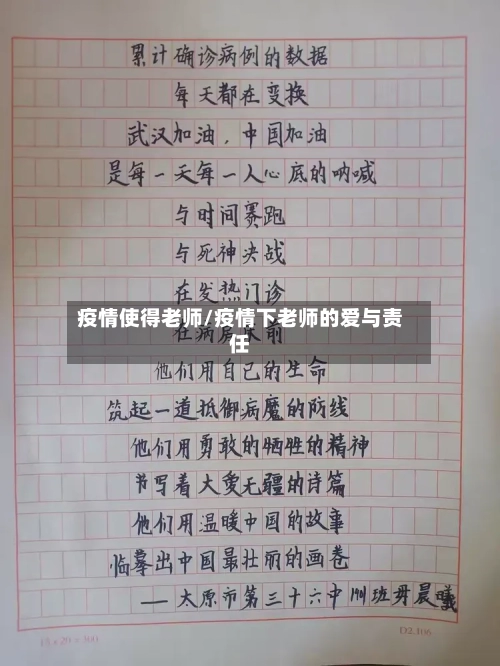 累计确诊病例的数据
每天都在变换
武汉加油，中国加油
是每一天每一人心底的呐喊
与时间赛跑
与死神决战
在发热门诊
疫情使得老师/疫情下老师的爱与责
任
在病房床前
他们用自己的生命
筑起一道抵御病魔的防线
他们用勇敢的牺牲的精神
书写着大爱无疆的诗篇
他们用温暖中国的故事
临摹出中国最壮丽的画卷
——太原市第三十六中1901班毋晨曦
15×20=300
D2.106